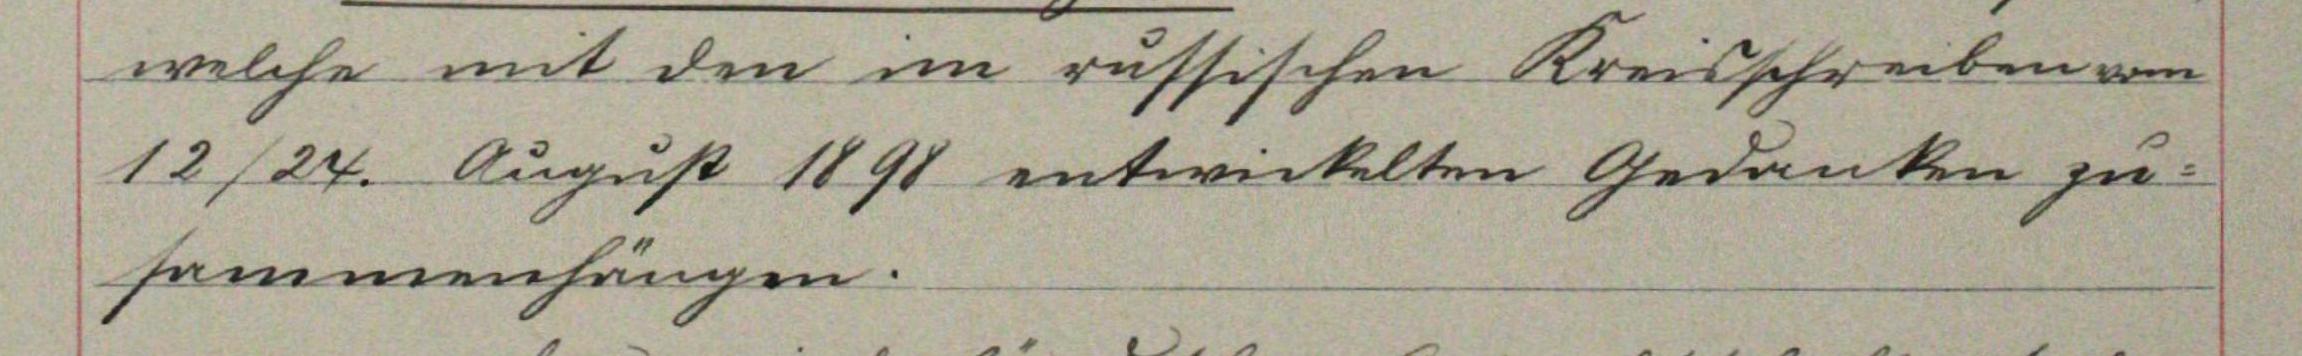 welche mit den im russischen Kreisschreiben vom
12/24. August 1898 entwickelten Gedanken zu=
sammenhängen.